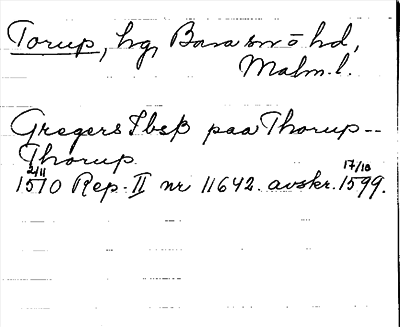 Torup, hg, Bara sn o hd,
Malm. l.
Gregers Jbsß paa Thorup--
Thorup
2/11 17/10
1510 Rep. II nr 11642. avskr. 1599.